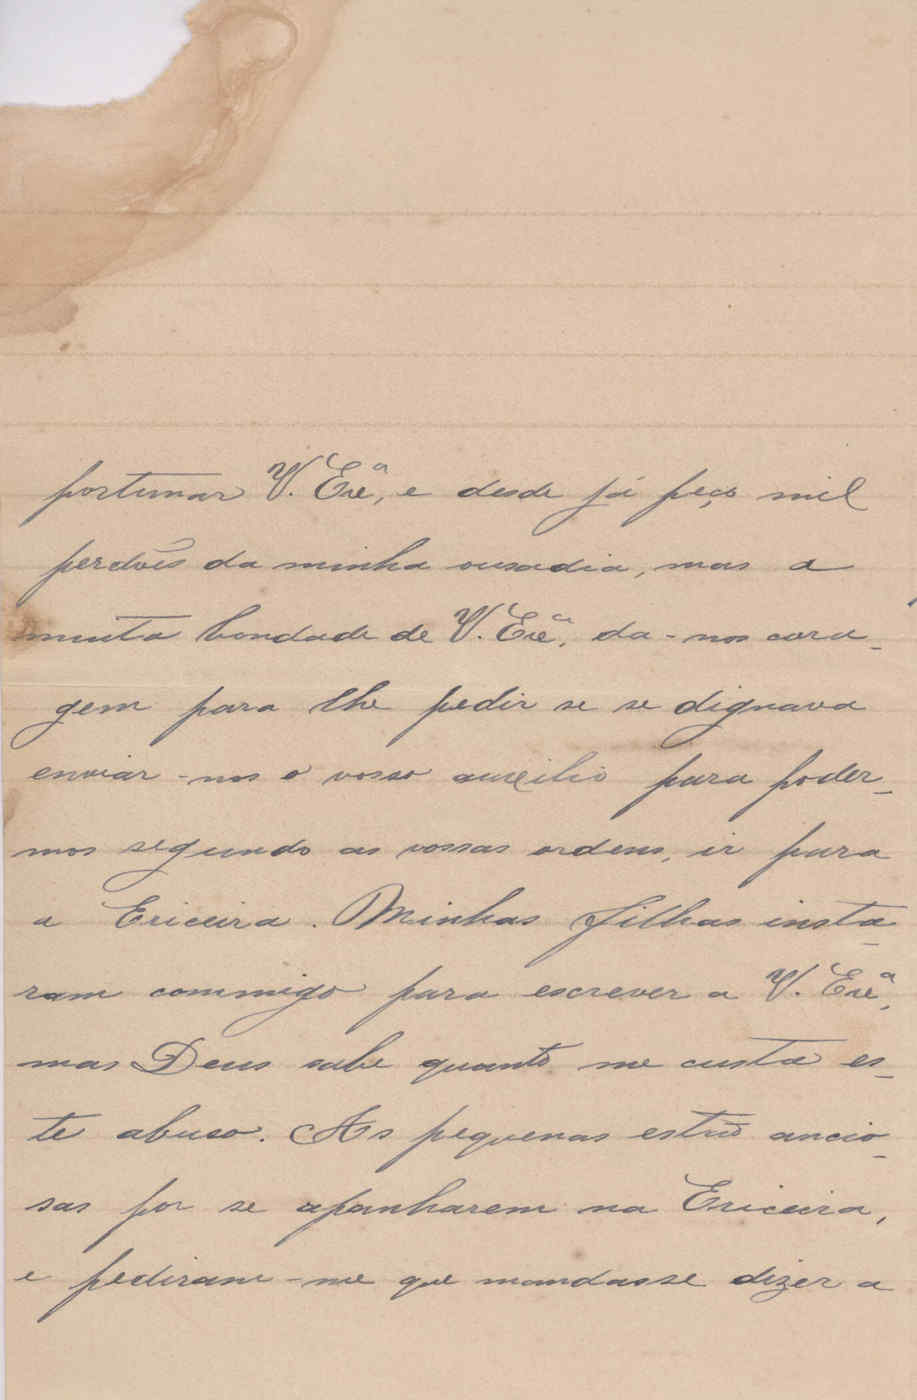 portunar V. Exª, e desde já peço mil
perdões da minha ousadia, mas a
muita bondade de V. Exª. da-nos cora-
gem para lhe pedir se se dignava
enviar-nos o vosso auxilio para poder-
mos segundo as vossas ordens, ir para
a Ericeira. Minhas filhas insta-
ram commigo para escrever a V. Exª,
mas Deus sabe quanto me custa es-
te abuso. As pequenas estão ancio-
sas por se apanharem na Ericeira,
e pediram-me que mandasse dizer a